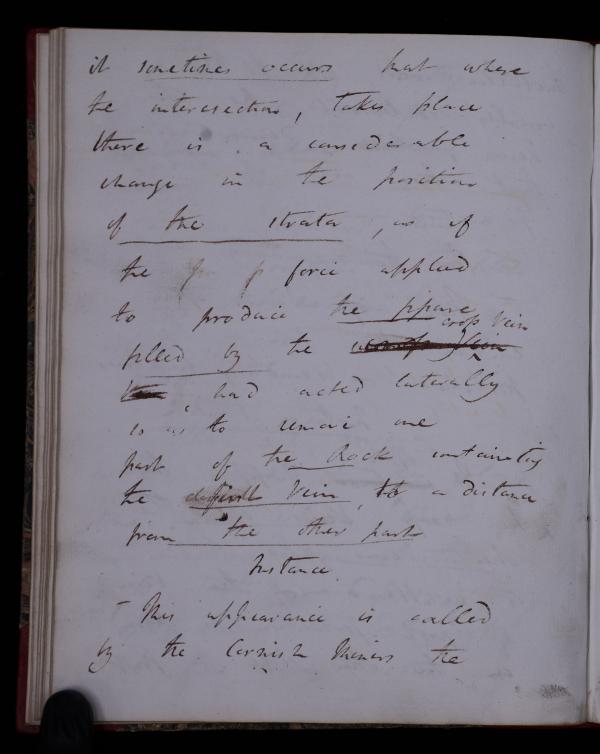 it sometimes occurs that where
the intersection, takes place
there is a considerable
change in the position
of the strata, as if
the force applied
to produce the fissure
cross Vein
filled by the
had acted laterally
so as to remove one
part of the Rock containing
the Vein, to a distance
from the other part
Instance.
– This appearance is called
by the Cornish Miners the